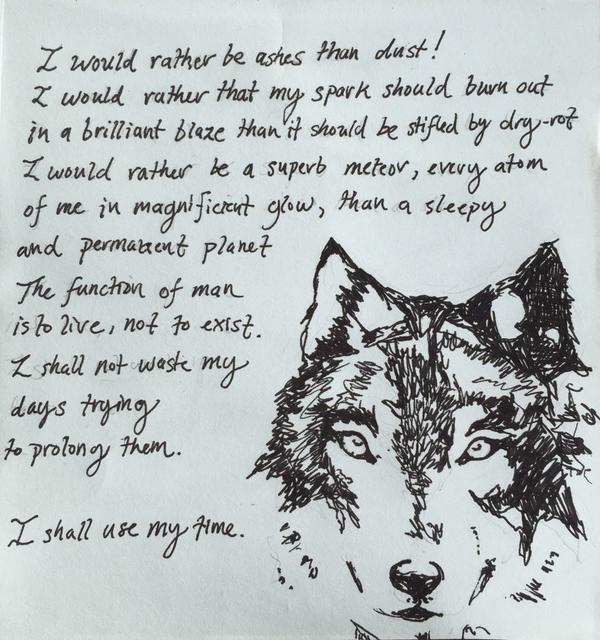 I would rather be ashes than dust!
I would rather that my spark should burn out
in a brilliant blaze than it should be stifled by dry-rot
I would rather be a superb meteor, every atom
of me in magnificient glow, than a sleepy
and permanent planet
The function of man
is to live, not to exist.
I shall not waste my
days trying
to prolong them.
I shall use my time.